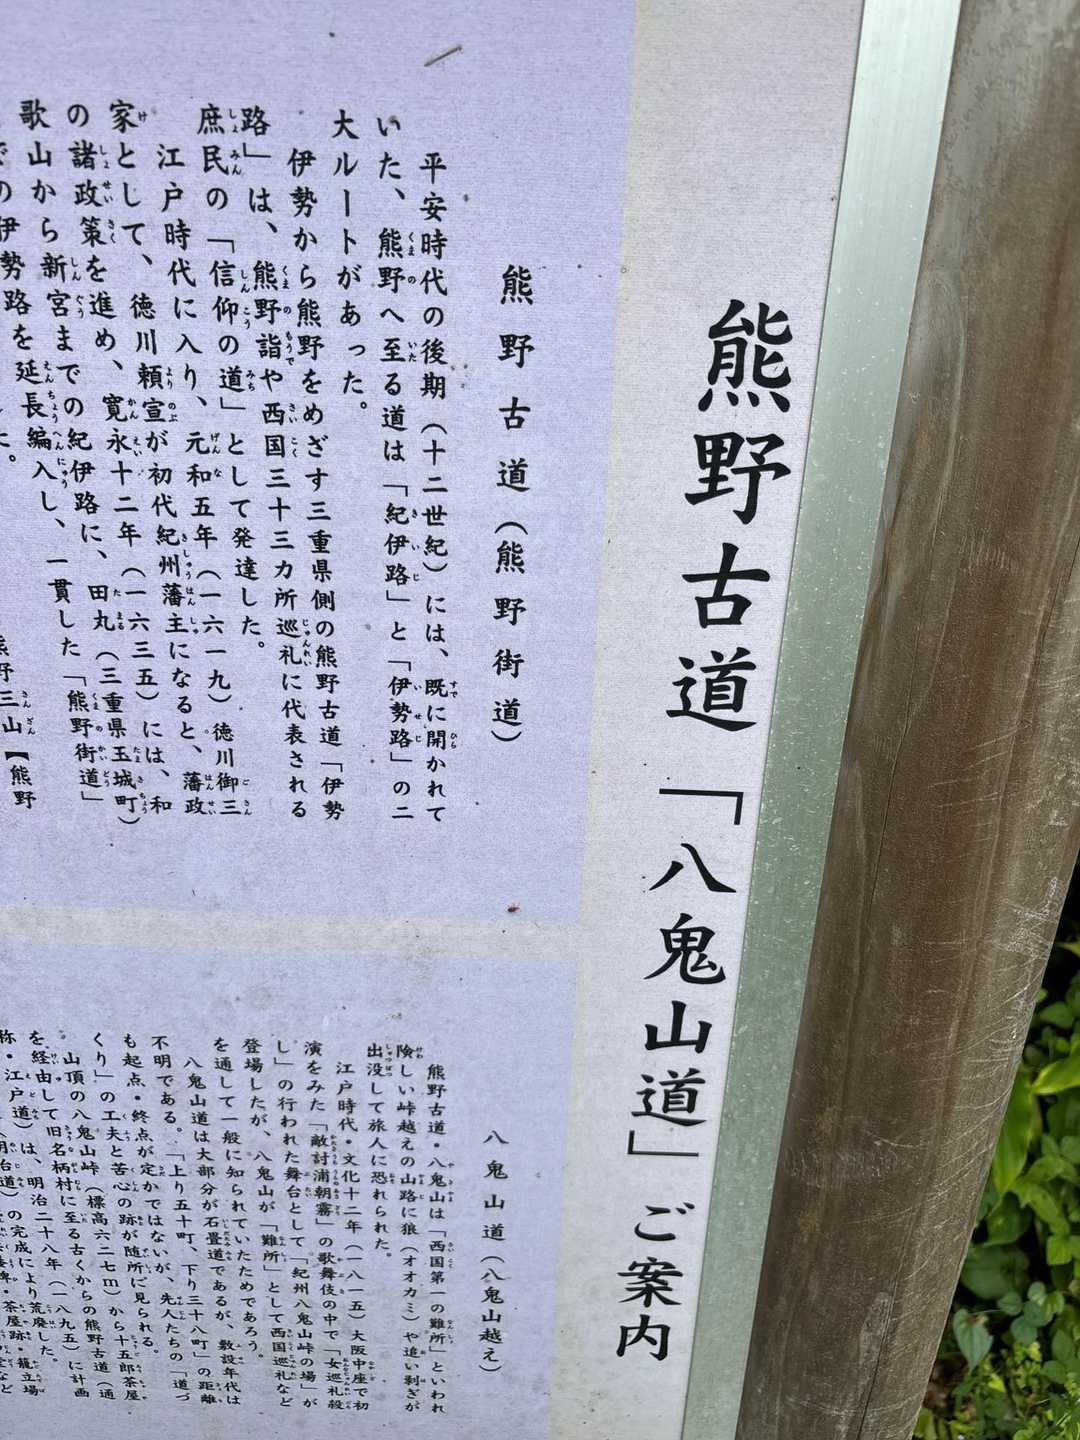 熊野古道「八鬼山道」ご案内
熊野古道（熊野街道）
平安時代の後期（十二世紀）には、既に開かれて
いた、熊野へ至る道は「紀伊路」と「伊勢路」の二
大ルートがあった。
伊勢から熊野をめざす三重県側の熊野古道「伊勢
路」は、熊野詣や西国三十三カ所巡礼に代表される
庶民の「信仰の道」として発達した。
江戸時代に入り、元和五年（一六一九）徳川御三
家として、徳川頼宣が初代紀州藩主になると、藩政
の諸政策を進め、寛永十二年（一六三五）には、和
歌山から新宮までの紀伊路に、田丸（三重県玉城町）
での伊勢路を延長編入し、一貫した「熊野街道」
熊野三山【熊野
八鬼山道（八鬼山越え）
熊野古道・八鬼山は「西国第一の難所」といわれ
険しい峠越えの山路に狼（オオカミ）や追い剥ぎが
出没して旅人に恐れられた。
江戸時代・文化十二年（一八一五）大阪中座で初
演をみた「敵討浦朝霧」の歌舞伎の中で「女巡礼殺
し」の行われた舞台として、「紀州八鬼山峠の場」が
登場したが、八鬼山が「難所」として西国巡礼など
を通して一般に知られていたためであろう。
八鬼山道は大部分が石畳道であるが、敷設年代は
不明である。「上り五十町、下り三十八町」の距離
も起点・終点が定かではないが、先人たちの「道づ
くり」の工夫と苦心の跡が随所に見られる。
山頂の八鬼山峠（標高六二七ｍ）から十五郎茶屋
を経由して旧名柄村に至る古くからの熊野古道（通
称・江戸道）は、明治二十八年（一八九五）に計画
の完成により荒廃した。
茶屋跡・籠立場